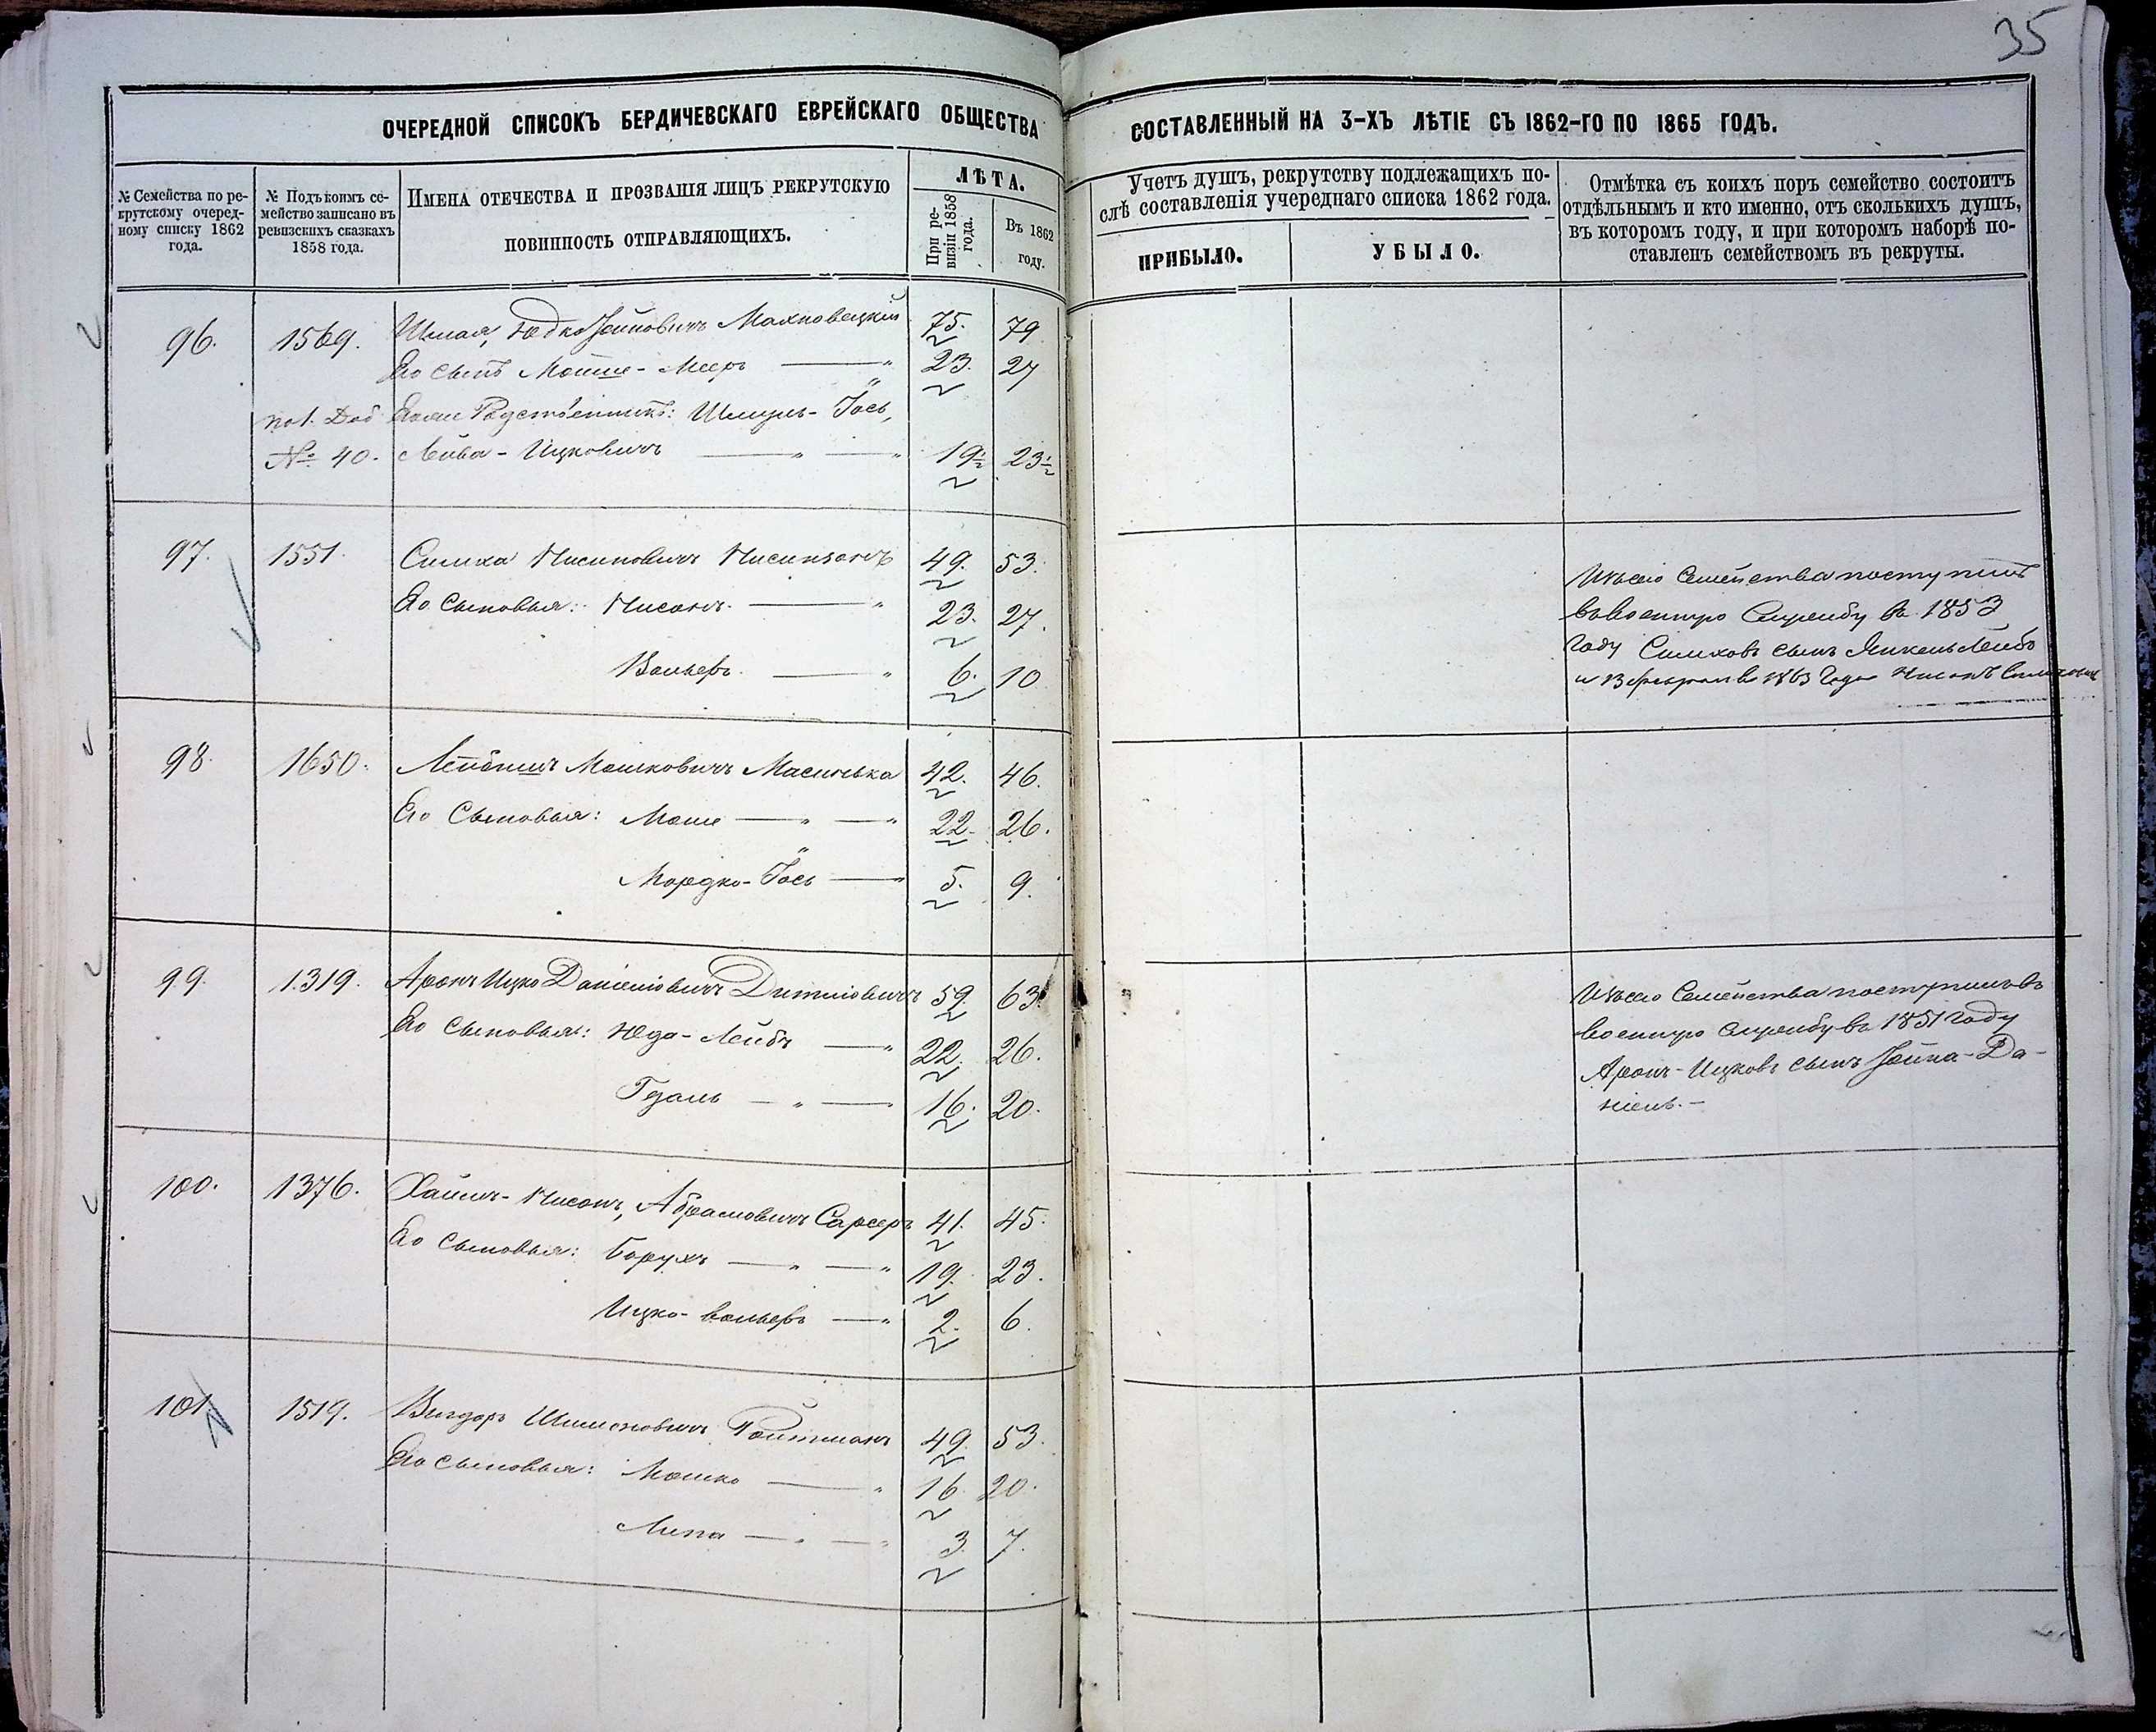 35
ОЧЕРЕДНОЙ СПИСОКЪ БЕРДИЧЕВСКАГО ЕВРЕЙСКАГО ОБЩЕСТВА
СОСТАВЛЕННЫЙ НА 3-ХЪ ЛѢТІЕ СЪ 1862-ГО ПО 1865 ГОДЪ.
№ Семейства по ре-
крутскому очеред-
ному списку 1862
года.
№ Подъ коимъ се-
мейство записано въ
ревизскихъ сказкахъ
1858 года.
ИМЕНА ОТЕЧЕСТВА И ПРОЗВАНІЯ ЛИЦЪ РЕКРУТСКУЮ
ПОВИННОСТЬ ОТПРАВЛЯЮЩИХЪ.
ЛѢТА.
При ре-
визіи 1858
года.
Въ 1862
году.
Учетъ душъ, рекрутству подлежащихъ по-
слѣ составленія учереднаго списка 1862 года.
ПРИБЫЛО.
УБЫЛО.
Отмѣтка съ коихъ поръ семейство состоитъ
отдѣльнымъ и кто именно, отъ сколькихъ душъ,
въ которомъ году, и при которомъ наборѣ по-
ставленъ семействомъ въ рекруты.
96. 1569. Шмая, Юдко Іойновичъ Махновецкій 75. 79
Его сынъ Мойше-Мееръ — " 23. 27
по 1. Доб Родственникъ: Шмуль-Іось,
№ 40. Лейба-Ицковичъ — " — " 19½ 23½
97. 1551. Симха Нисиновичъ Нисинзонъ 49. 53.
Его Сыновья: Нисонъ. — " 23. 27.
Вольфъ. — " 6. 10
Изъ сего Семейства поступилъ
въ военную Службу въ 1853
Году Симховъ сынъ Янкель Лейбъ
и въ 1863 Года Нисонъ
98. 1650. Лейбишъ Мошковичъ Масинька 42. 46.
Его Сыновья: Моше — " — " 22. 26.
Мордко-Іось — " 5. 9.
99. 1319. Аронъ Ицко Даніеліовичъ 59. 63.
Его Сыновья: Юда-Лейбъ — " 22. 26.
Гдаль — " — 16. 20.
Изъ сего Семейства поступилъ въ
военную службу въ 1851 Году
Аронъ-Ицковъ сынъ Іойна-Да-
ніель.-
100. 1376. Хаимъ-Нисонъ, Абрамовичъ Сарсеръ 41. 45.
Его Сыновья: Борухъ — " — " 19. 23.
Ицко-Вольфъ — " 2. 6.
101 1519. Вигдоръ Шимоновичъ Ройтманъ 49. 53.
Его сыновья: Мошко — " 16 20.
Липа — " — " 3. 7.